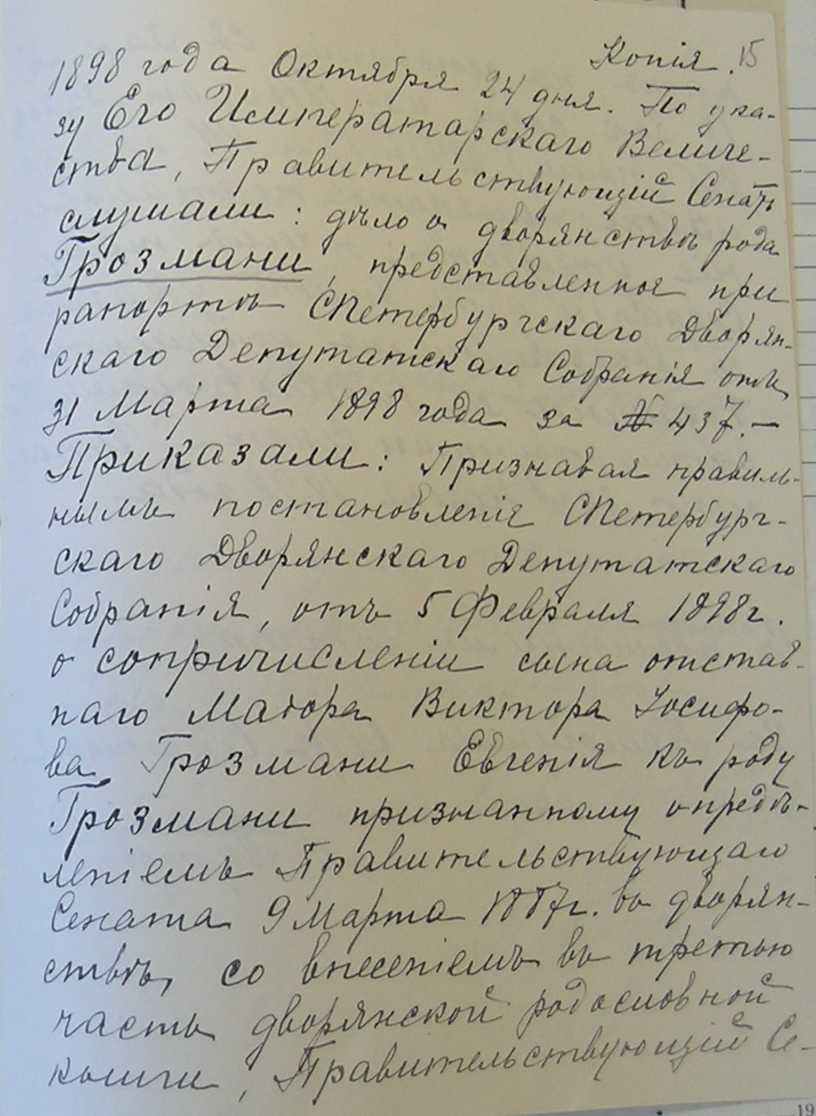 Копія. 15
1898 года Октября 24 дня. По ука-
зу Его Императорскаго Величе-
ства, Правительствующій Сенатъ
слушали: дѣло о дворянствѣ рода
Грозмани, представленное при
рапортѣ СПетербургскаго Дворян-
скаго Депутатскаго Собранія отъ
31 Марта 1898 года за № 437.—
Приказали: Признавая правиль-
нымъ постановленіе СПетербург-
скаго Дворянскаго Депутатскаго
Собранія, отъ 5 Февраля 1898 г.
о сопричисленіи сына отстав-
наго Маіора Виктора Іосифо-
ва Грозмани Евгенія къ роду
Грозмани признанному опредѣ-
леніемъ Правительствующаго
Сената 9 Марта 1887 г. въ дворян-
ствѣ, со внесеніемъ въ третью
часть дворянской родословной
книги, Правительствующій Се-
19